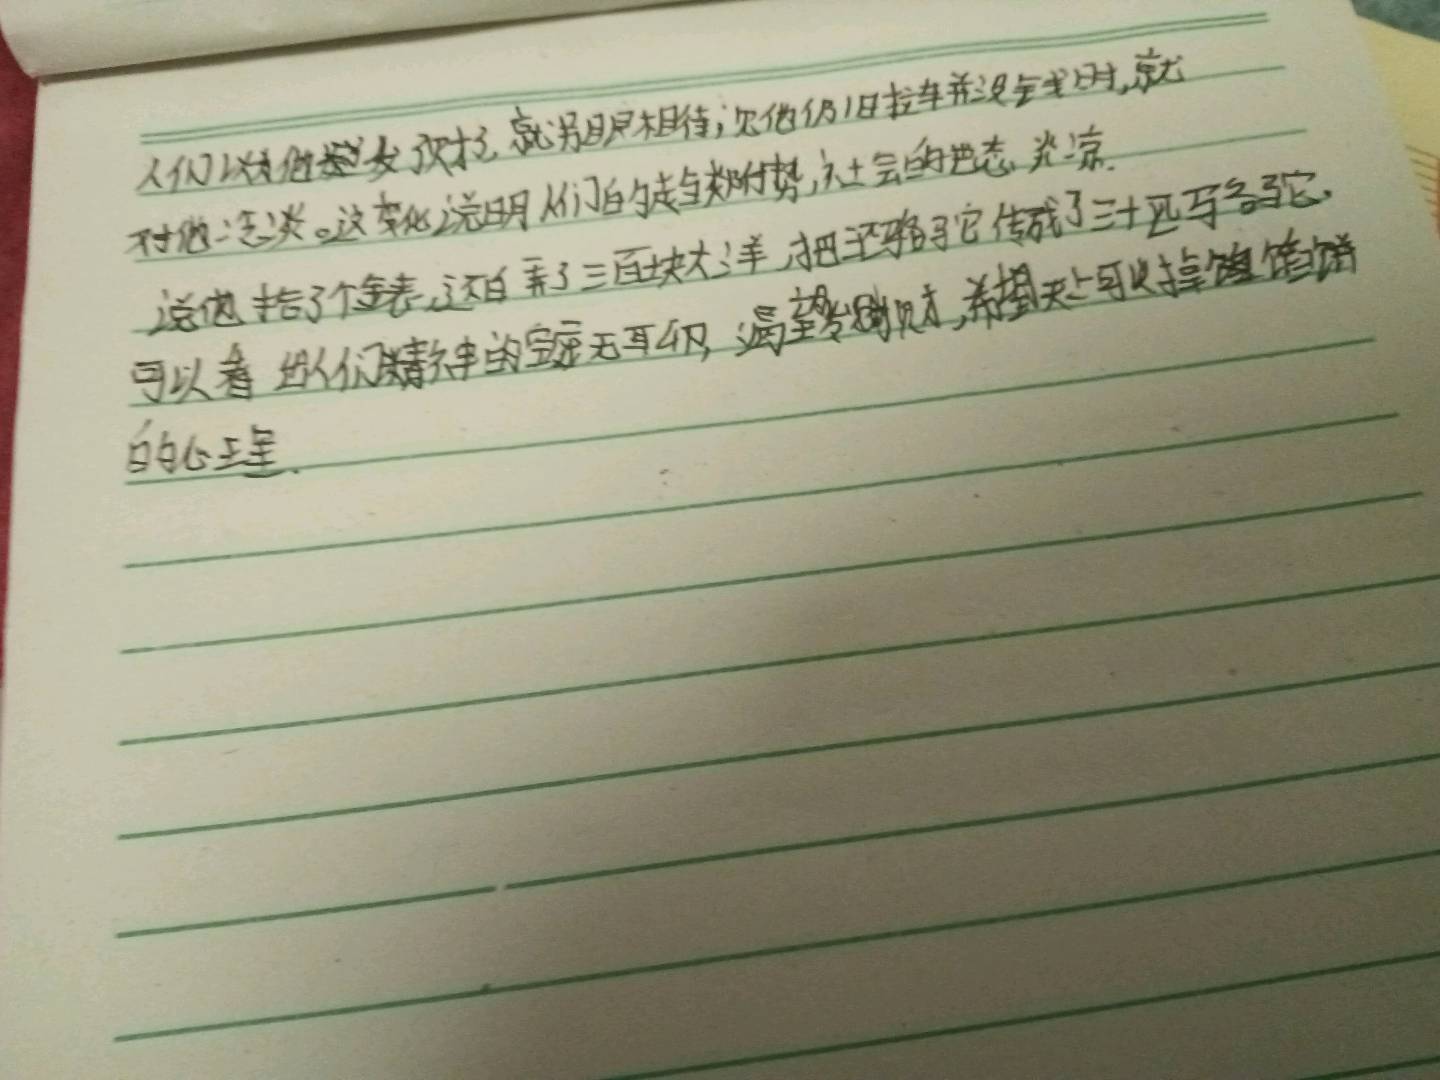 人们以为他发了财了,就另眼相待;见他仍旧拉车并没会钱时,就
对他冷淡。这变化说明人们的趋炎附势,社会的世态炎凉.
说他拾了个金表,还白弄了三百块大洋,把三匹骆驼传成了三十匹骆驼.
可以看出人们精神的空虚无聊,渴望发横财,希望天上可以掉馅饼
的心理.